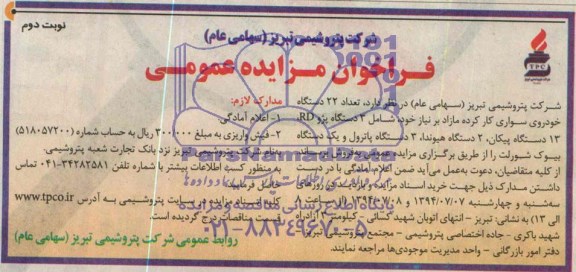 نوبت دوم
شرکت پتروشیمی تبریز (سهامی عام)
TPC
فراخوان مزایده عمومی
شرکت پتروشیمی تبریز (سهامی عام) در نظر دارد، تعداد ۲۲ دستگاه
خودروی سواری کار کرده مازاد بر نیاز خود، شامل ۳ دستگاه پژو RD،
۱۳ دستگاه پیکان، ۲ دستگاه هیوندا، ۳ دستگاه پاترول و یک دستگاه
بیوک شورلت را از طریق برگزاری مزایده عمومی بفروش برساند.
از کلیه متقاضیان، دعوت به‌عمل می‌آید ضمن اعلام آمادگی با در دست
داشتن مدارک ذیل جهت خرید اسناد مزایده و بازدید در روزهای
سه‌شنبه و چهارشنبه ۱۳۹۴/۰۷/۰۷ و ۱۳۹۴/۰۷/۰۸ از ساعت ۸
الی ۱۳) به نشانی: تبریز - انتهای اتوبان شهید کسائی - کیلومتر ۳ آزادراه
شهید باکری - جاده اختصاصی پتروشیمی - مجتمع پتروشیمی تبریز -
دفتر امور بازرگانی - واحد مدیریت موجودی‌ها مراجعه نمایند.
مدارک لازم:
۱- اعلام آمادگی
۲- فیش واریزی به مبلغ ۳۰۰/۰۰۰ ریال به حساب شماره (۵۱۸۰۵۷۲۰۰)
بنام شرکت پتروشیمی تبریز نزد بانک تجارت شعبه پتروشیمی.
به منظور کسب اطلاعات بیشتر با شماره تلفن ۳۴۲۸۲۵۸۱-۰۴۱ تماس
حاصل فرمایید.
کلیه اسناد مزایده در سایت پتروشیمی به آدرس www.tpco.ir
قسمت مناقصات درج گردیده است.
روابط عمومی شرکت پتروشیمی تبریز (سهامی عام)
ParsNamadData
پایگاه اطلاع رسانی مناقصه و مزایده
۰۲۱-۸۸۳۴۹۶۷۰-۵